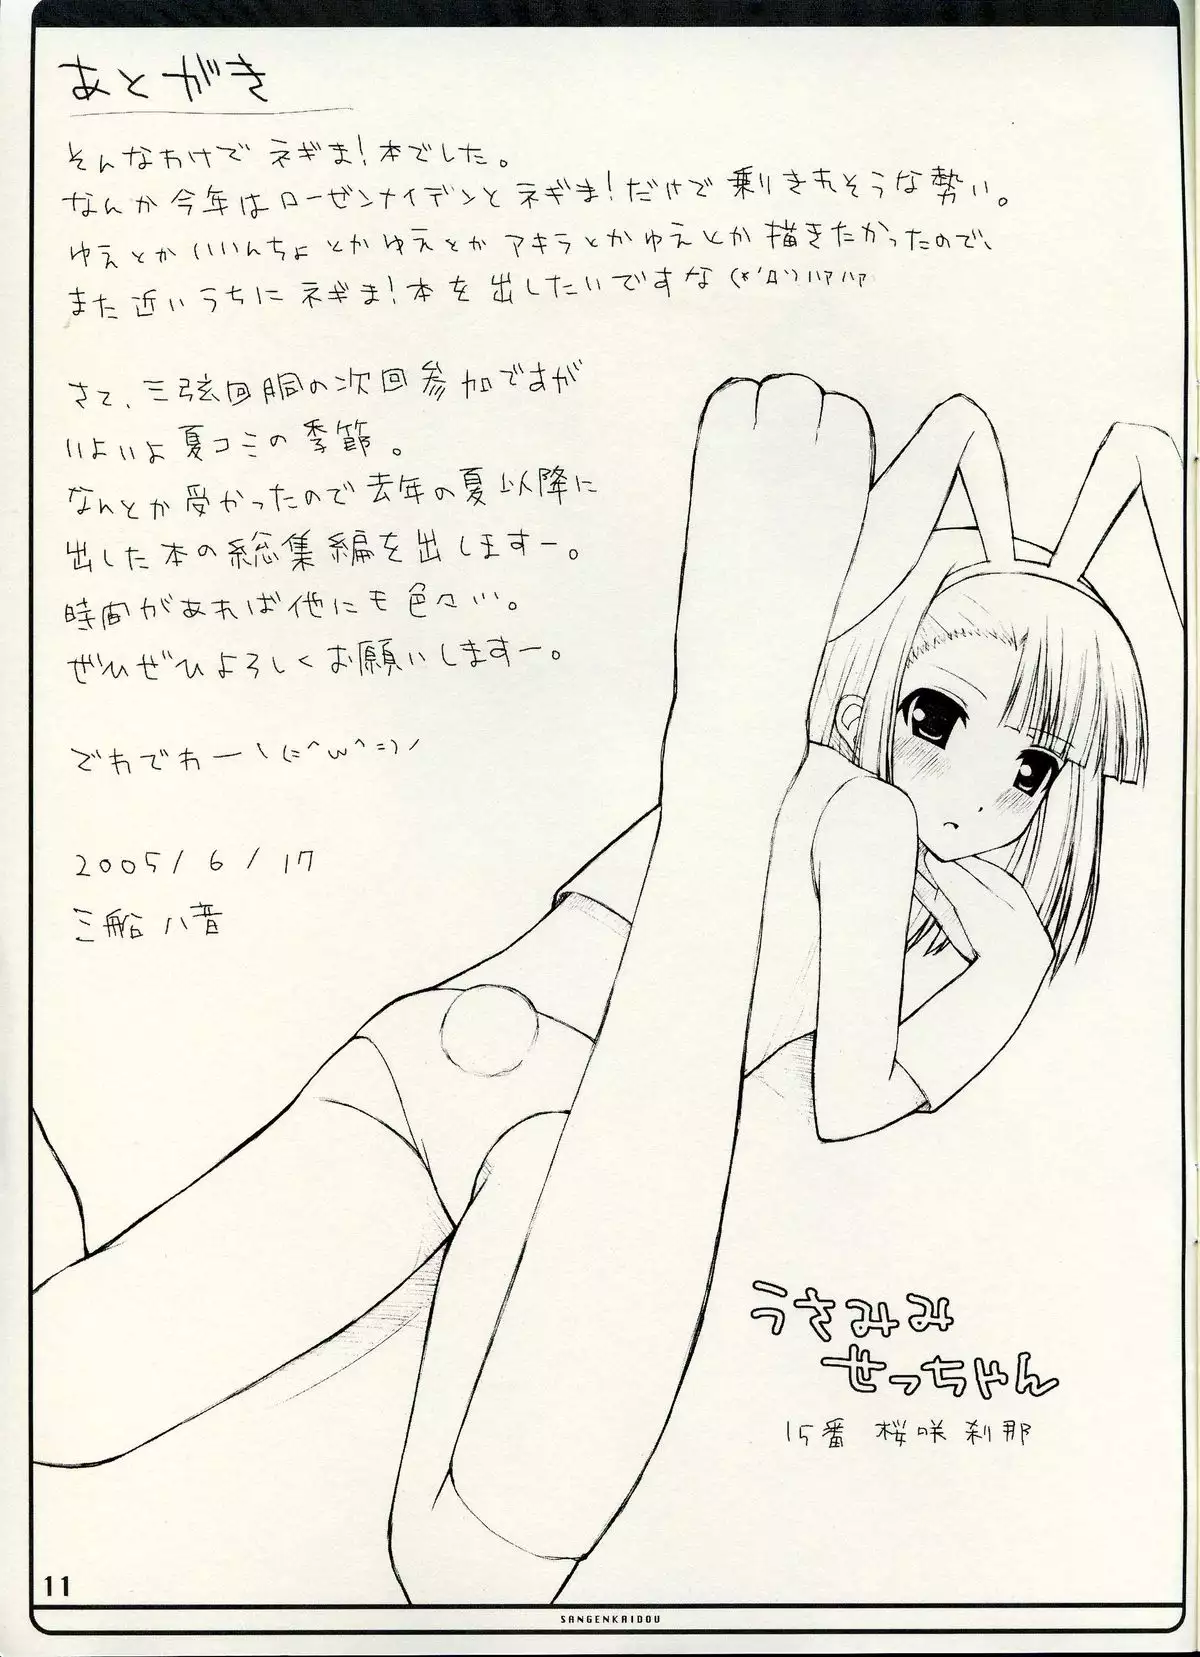 あとがき
そんなわけでネギま!本でした。
なんか今年はローゼンメイデンとネギま!だけで乗りきれそうな勢い。
ゆえとかいいんちょとかゆえとかアキラとかゆえとか描きたかったので、
また近いうちにネギま!本を出したいですな(*´Д`)ハァハァ
さて、三弦回胴の次回参加ですが
いよいよ夏コミの季節。
なんとか受かったので去年の夏以降に
出した本の総集編を出しますー。
時間があれば他にも色々い。
ぜひぜひよろしくお願いしますー。
でわでわーヽ(=^w^=)ノ
2005/6/17
三船八音
うさみみ
せっちゃん
15番 桜咲刹那
11
SANGENKAIDOU